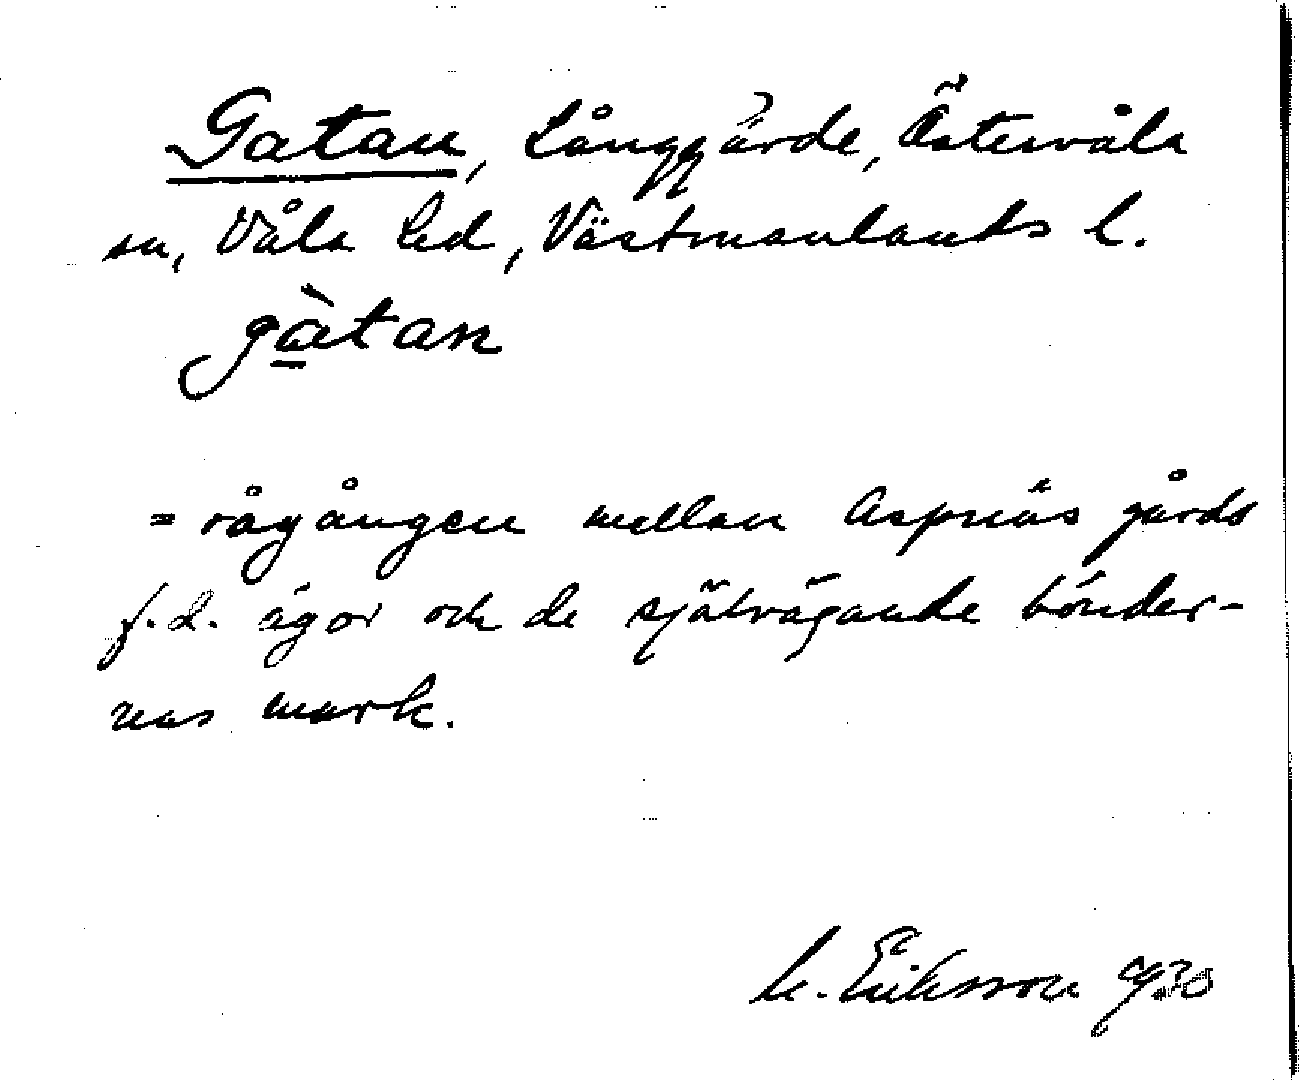 Gatan, Långgärde, Östervåla
sn, Våla hd, Västmanlands l.
gàtan
= rågången mellan Aspnäs gårds
f.d. ägor och de självägande bönder-
nas mark.
M. Eriksson 1930